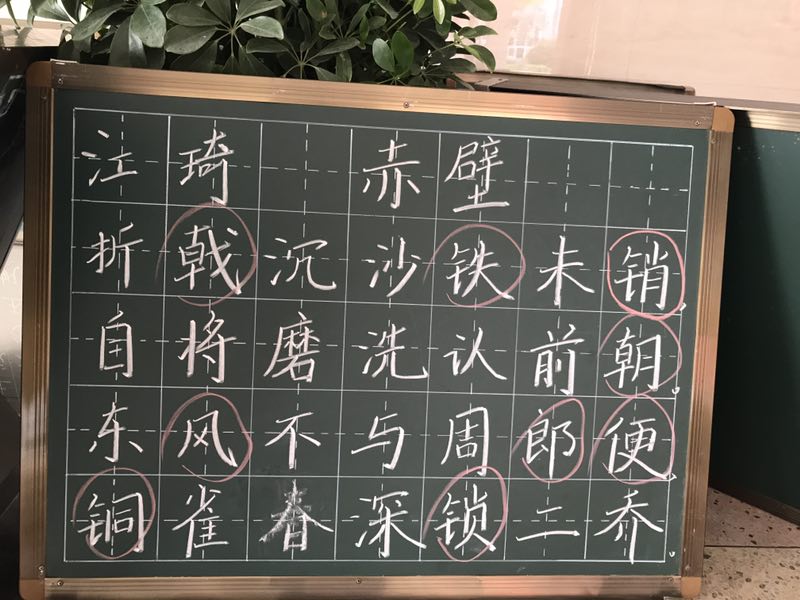 江琦 赤壁
折戟沉沙铁未销,
自将磨洗认前朝。
东风不与周郎便,
铜雀春深锁二乔。